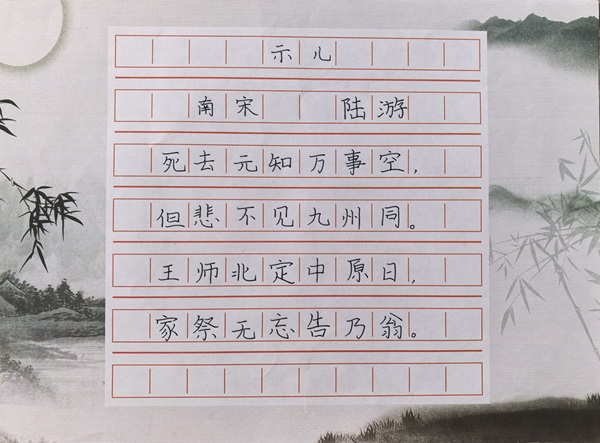 示儿
南宋 陆游
死去元知万事空，
但悲不见九州同。
王师北定中原日，
家祭无忘告乃翁。